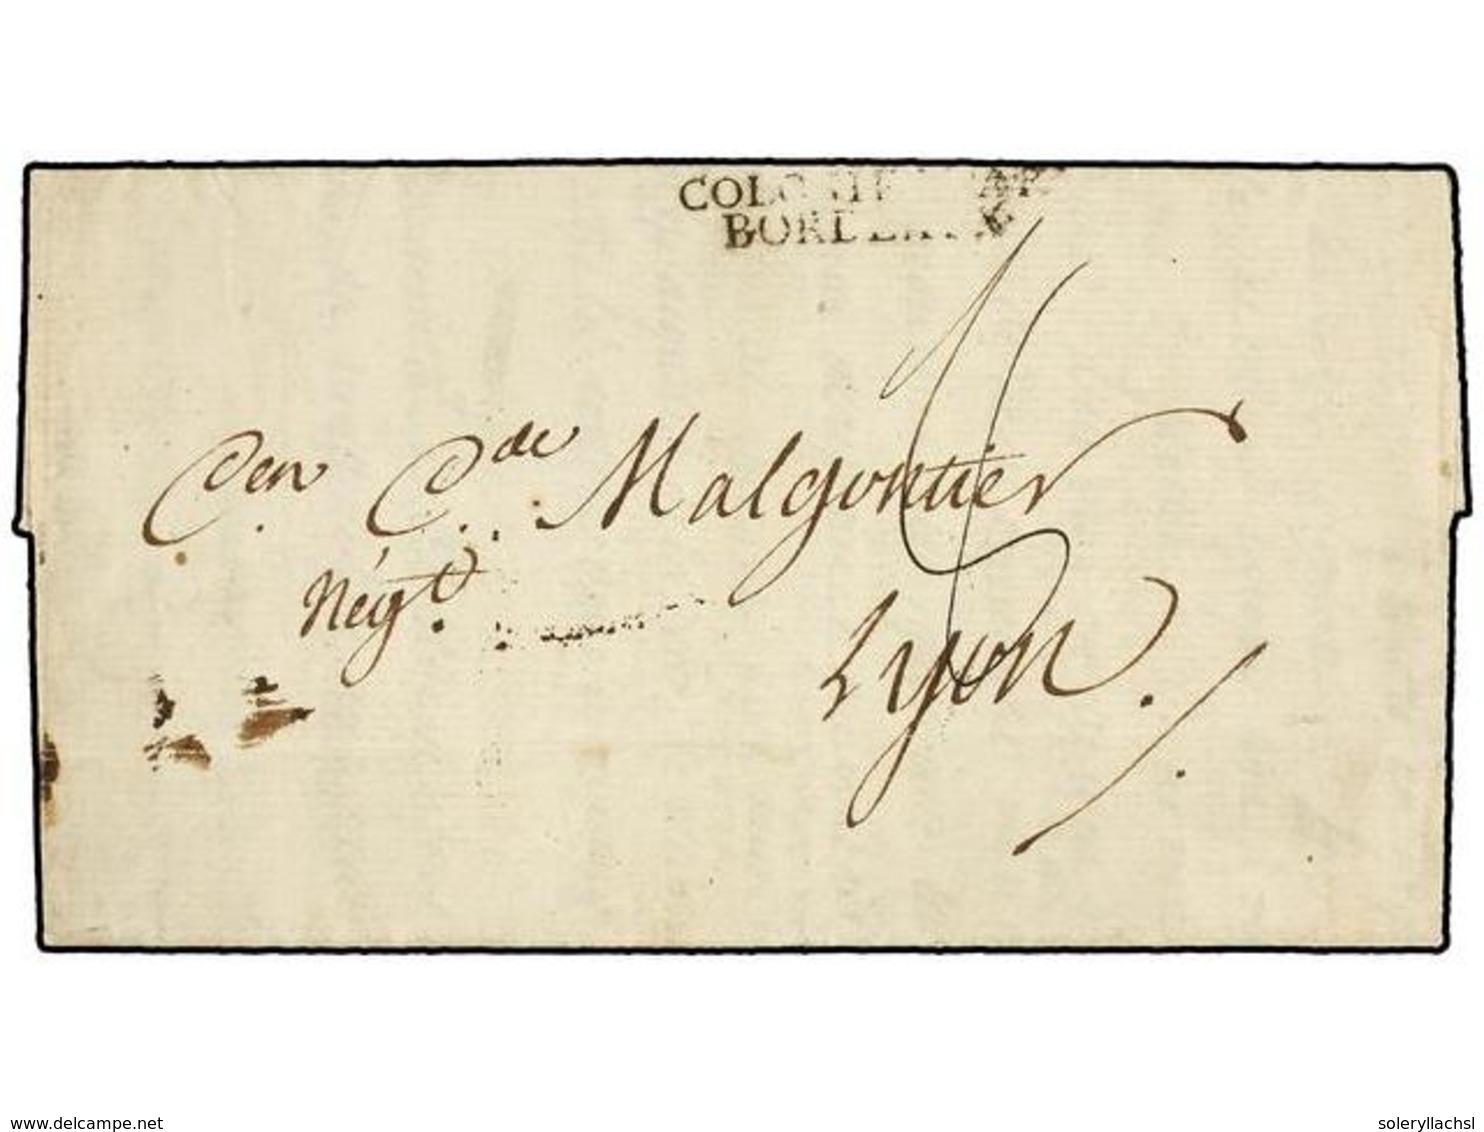 COLONIES PAR
BORDEAUX
Cen C.de Malgontier
Négt.
Lyon.
delcampe.net
soleryllachsl